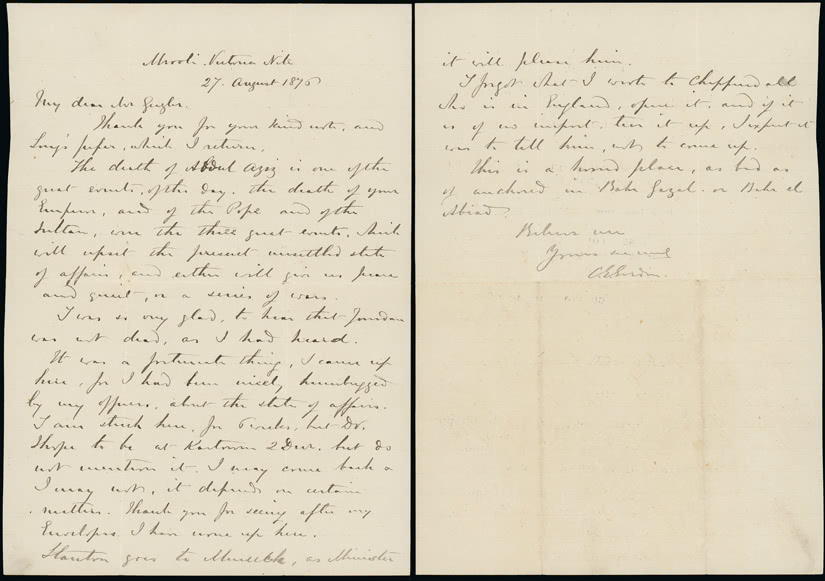 Mrooli. Victoria Nile
27. August 1876
My dear Mr Giegler.
Thank you for your kind note, and
Long's paper, which I return.
The death of Abdul Aziz is one of the
great events, of the day. the death of your
Emperor, and of the Pope and of the
Sultan, were the three great events, which
will upset the present unsettled state
of affairs, and either will give us peace
and quiet, or a series of wars.
I was so very glad, to hear that
was not dead, as I had heard.
It was a fortunate thing, I came up
here, for I had been nicely humbugged
by my officers, about the state of affairs.
I am stuck here, for weeks, but D.V.
I hope to be at Kartoum 2 Decr. but do
not mention it. I may come back or
I may not, it depends on certain
matters. Thank you for seeing after my
Envelopes. I have none up here.
Stanton goes to Munich, as Minister
it will please him.
I forgot that I wrote to Chippendall
who is in England, open it, and if it
is of no import, tear it up, I expect it
was to tell him, not to come up.
This is a horrid place, as bad as
if anchored in Bahr Gazal. or Bahr el
Abiad.
Believe me
Yours sincerely
C. E. Gordon.